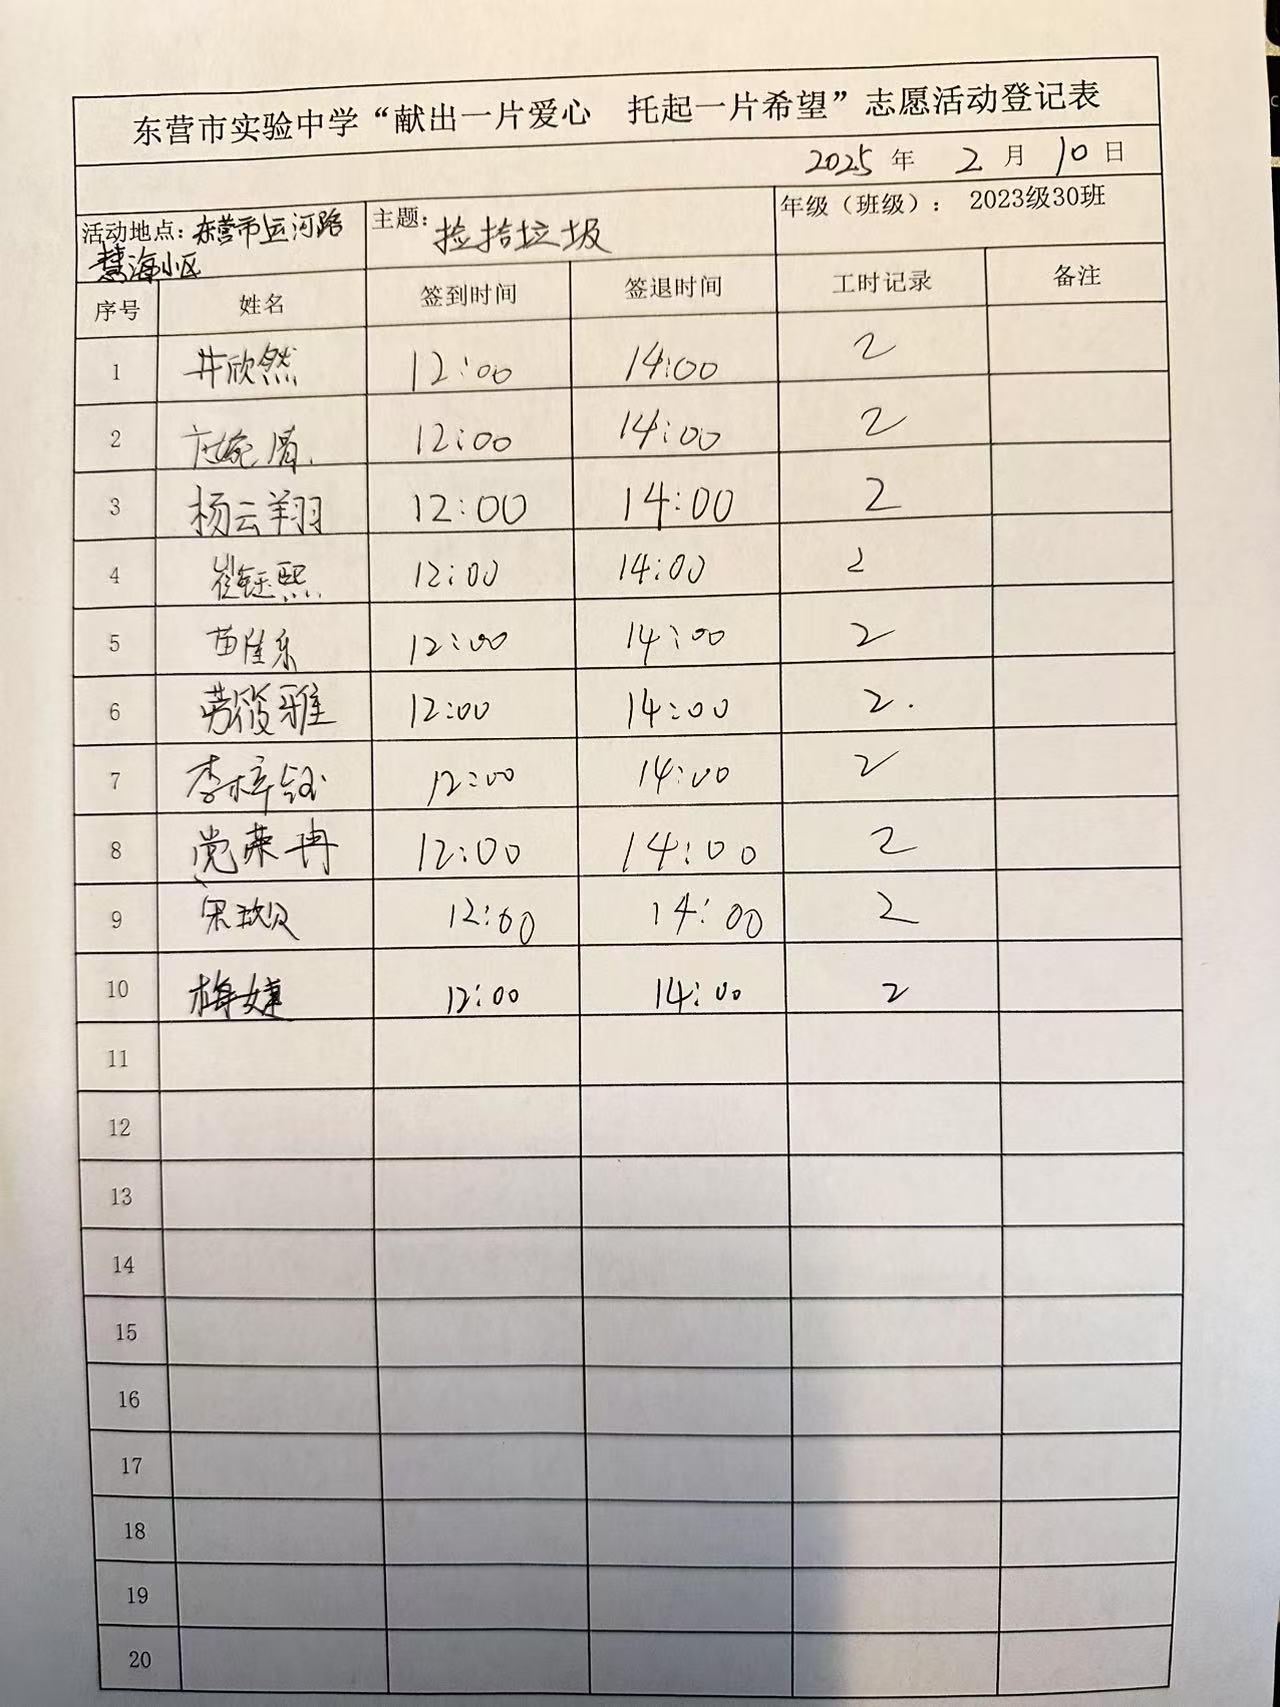 东营市实验中学“献出一片爱心 托起一片希望”志愿活动登记表
2025 年 2 月 10 日
活动地点：东营市运河路 主题：捡拾垃圾 年级（班级）： 2023级30班
慧海小区
序号 姓名 签到时间 签退时间 工时记录 备注
1 井欣然 12:00 14:00 2
2 12:00 14:00 2
3 杨云翔 12:00 14:00 2
4 崔钰熙 12:00 14:00 2
5 苗佳乐 12:00 14:00 2
6 劳筱雅 12:00 14:00 2.
7 李梓钰 12:00 14:00 2
8 党荣冉 12:00 14:00 2
9 12:00 14:00 2
10 梅婕 12:00 14:00 2
11
12
13
14
15
16
17
18
19
20